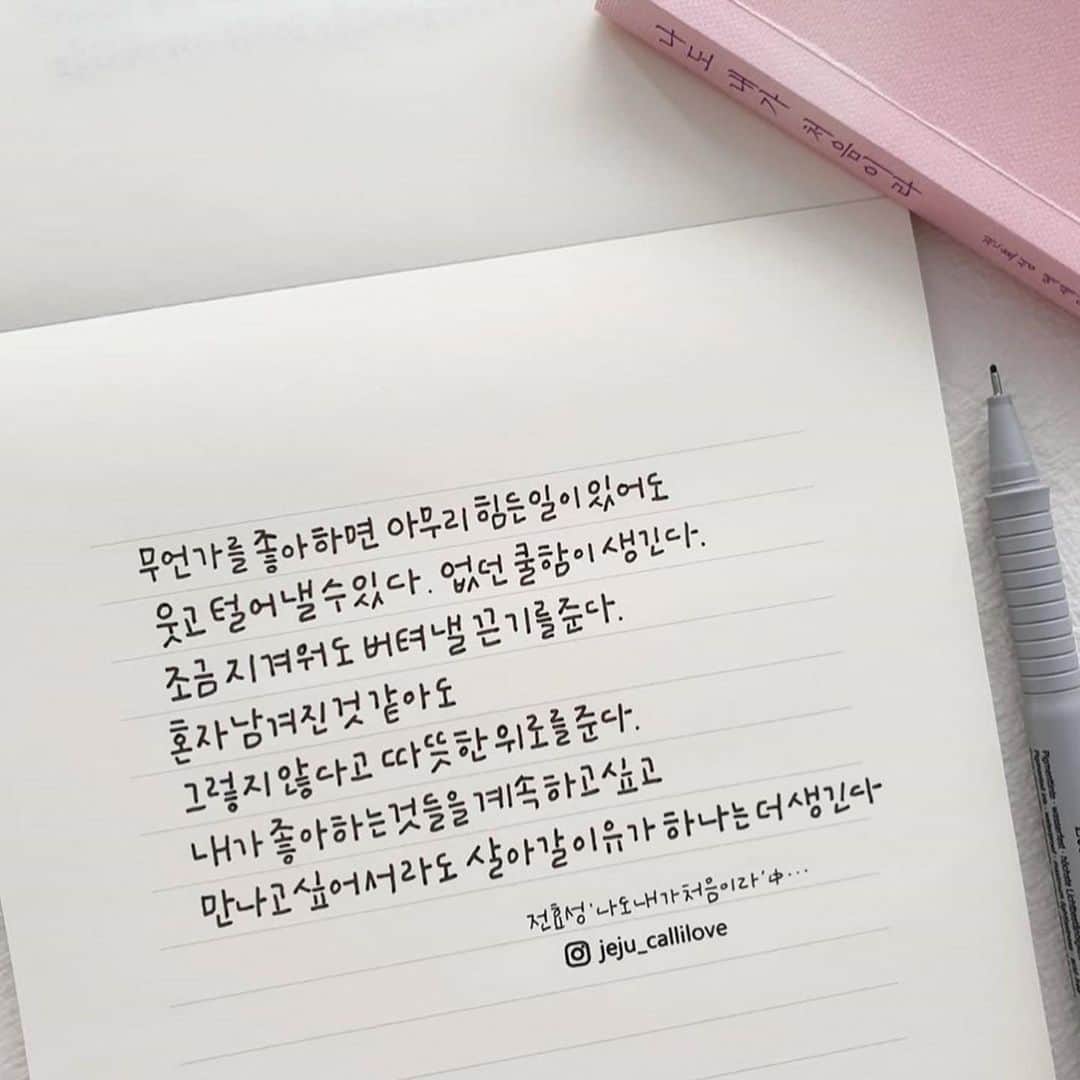 나도 내가 처음이라
무언가를 좋아하면 아무리 힘든일이 있어도
웃고 털어낼 수 있다. 없던 쿨함이 생긴다.
조금 지겨워도 버텨낼 끈기를 준다.
혼자 남겨진 것 같아도
그렇지 않다고 따뜻한 위로를 준다.
내가 좋아하는 것들을 계속 하고 싶고
만나고 싶어서라도 살아갈 이유가 하나는 더 생긴다
전효성 '나도 내가 처음이라' 中...
jeju_callilove